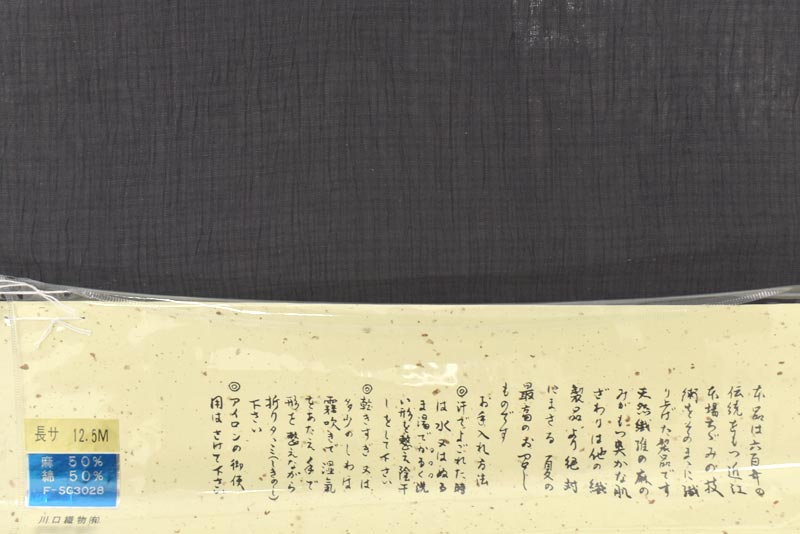 本品は六百年の
伝統をもつ近江
本場ちぢみの技
術をそのままに織
り上げた製品です
天然繊維の麻の
みがもつ爽かな肌
ざわりは他の繊
製品より絶対
にまさる夏の
最高のお召し
ものです
お手入れ方法
◎汗でよごれた時
は水又はぬる
ま湯でかるく洗
い形を整え陰干
しをして下さい
◎乾きすぎ又は
多少のしわは
霧吹きで湿気
をあたえ手で
形を整えながら
折りたゝみ(しきのし)
下さい
◎アイロンの御使
用はさけて下さい
長サ 12.5M
麻 50%
綿 50%
F-SG3028
川口織物㈲